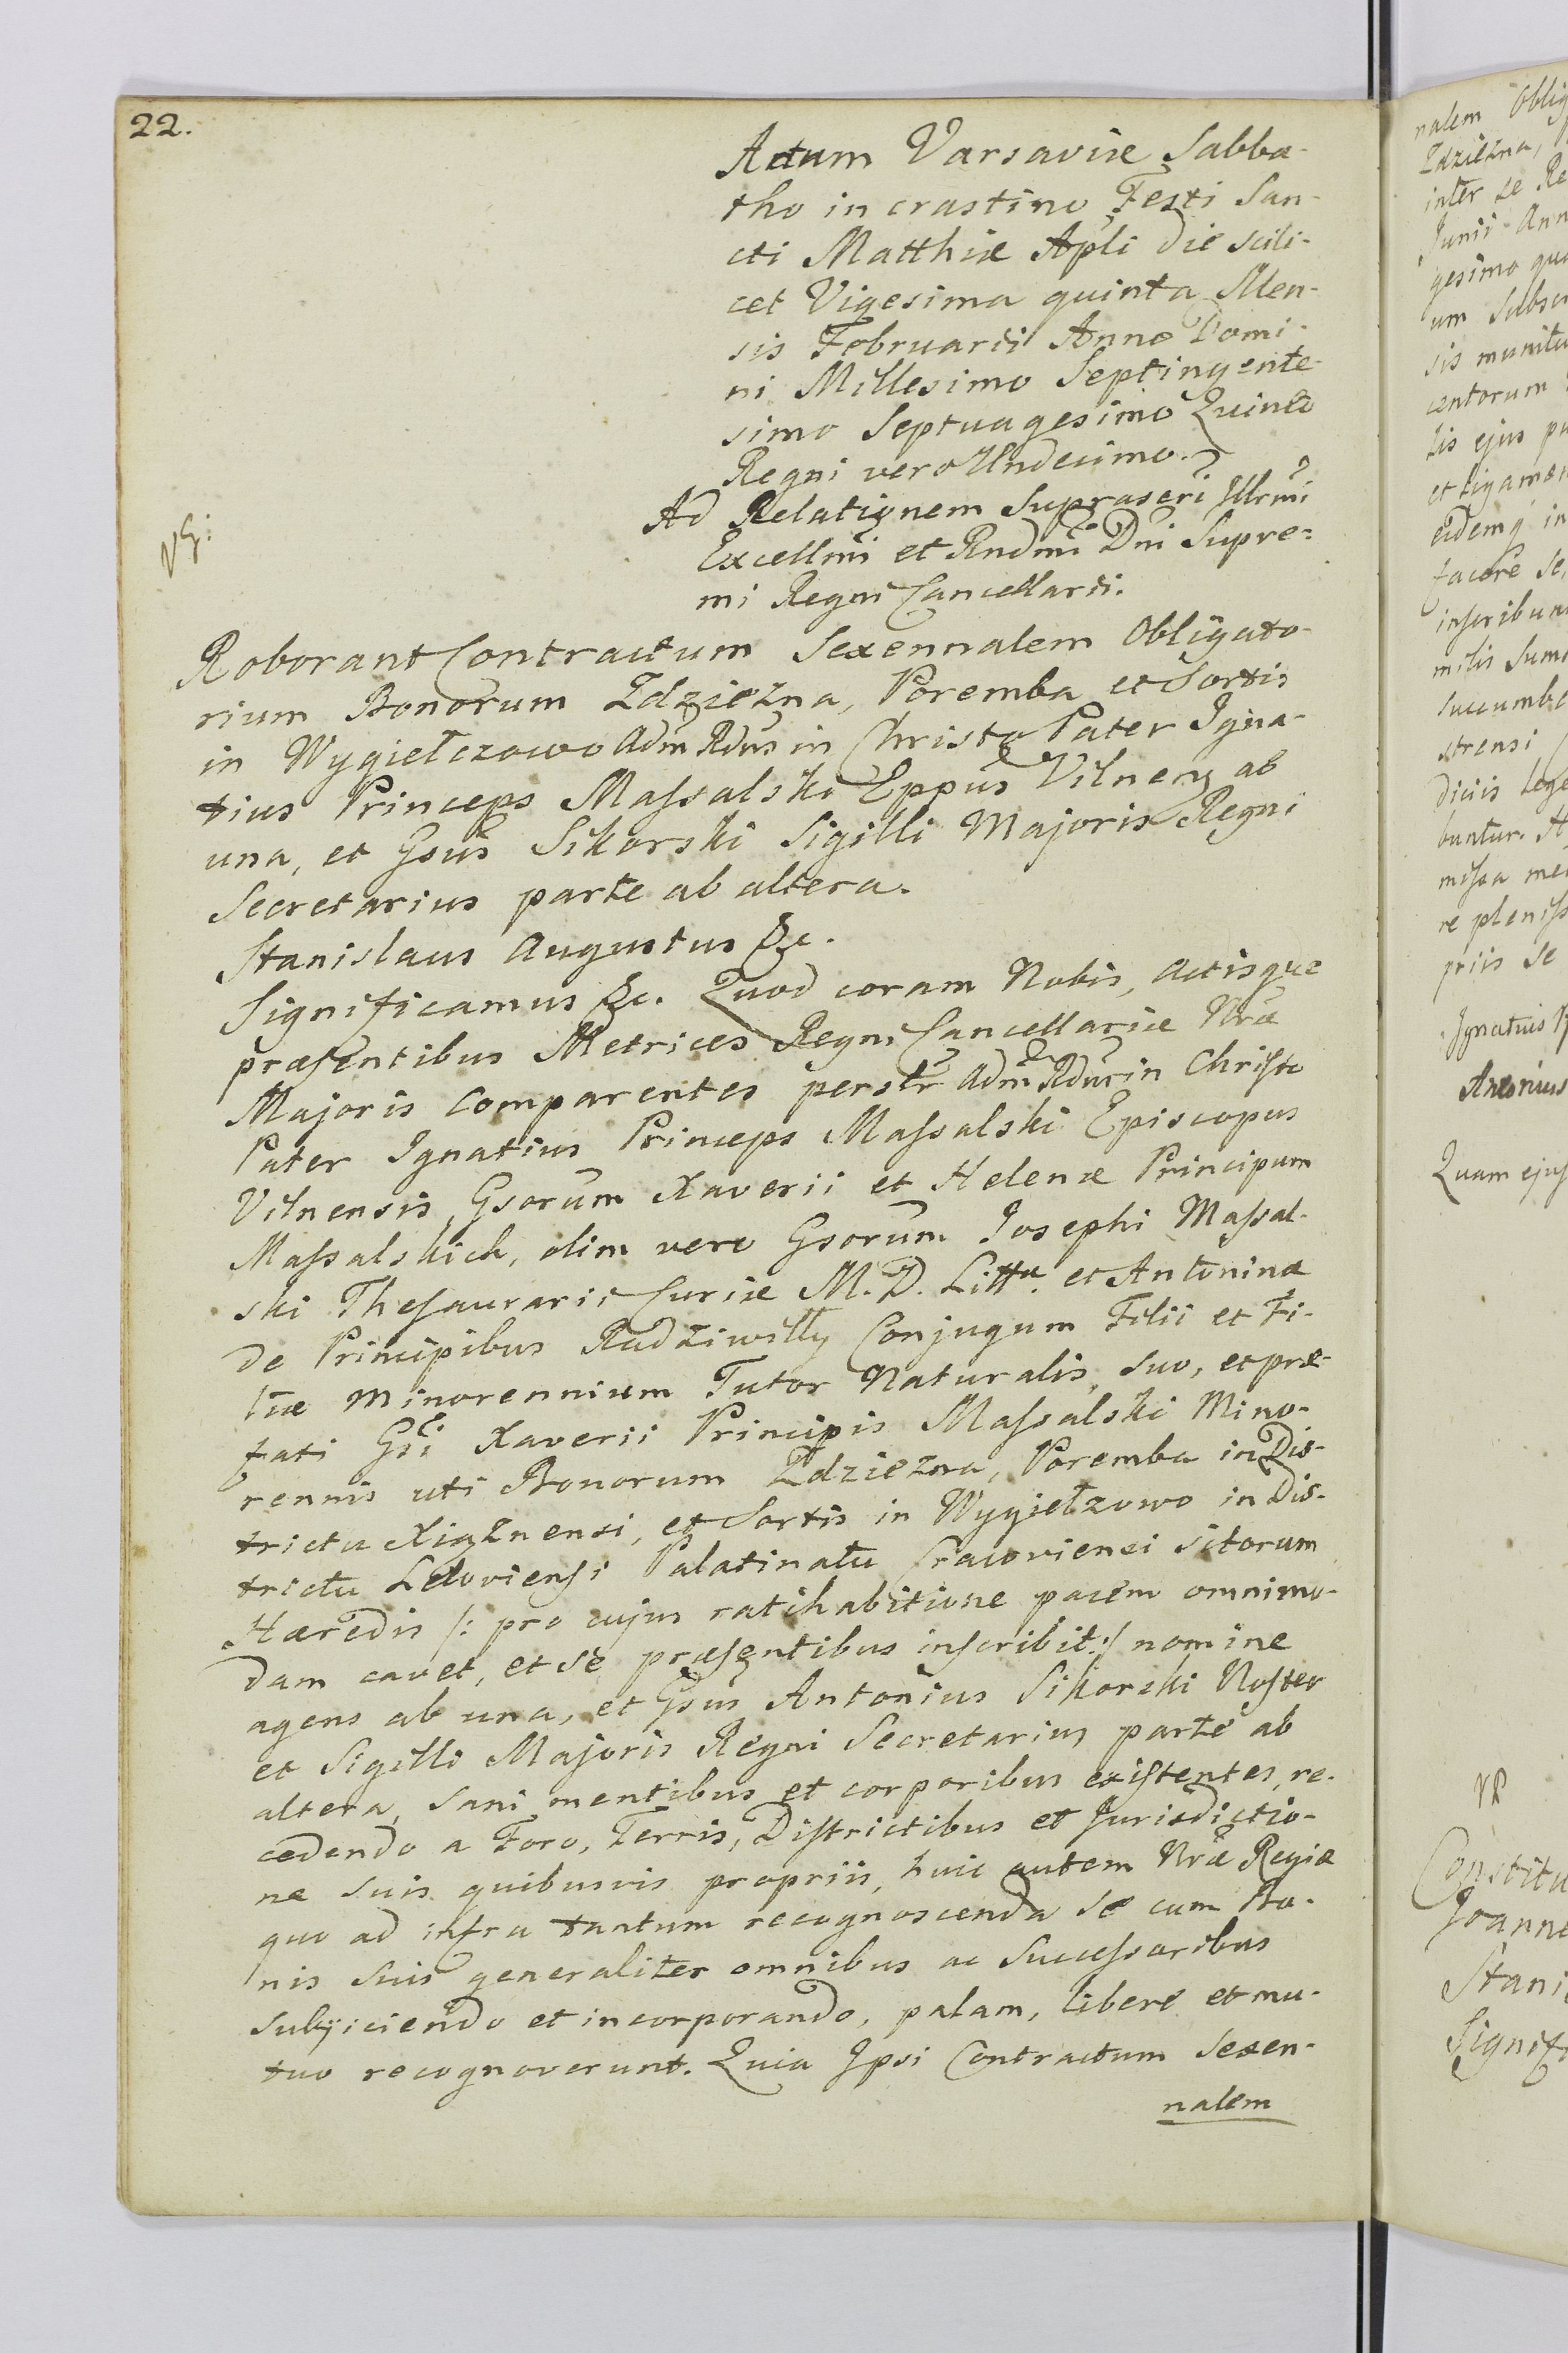 22.
Actum Varsaviæ Sabba-
tho in crastino Festi San-
cti Matthiæ Apli die scili-
cet Vigesima quinta Men-
sis Februarii Anno Domi-
ni Millesimo Septingente-
simo Septuagesimo Quinto
Regni vero Undecimo.
Ad Relationem Suprascri Illrmi
Excellmi et Rndmi Dni Supre=
mi Regni Cancellarii.
Roborant Contractum Sexennalem Obligato-
rium Bonorum Zdziezna, Poremba et Sortis
in Wygiełczowo Adm Rdus in Christo Pater Igna-
tius Princeps Massalski Eppus Vilnens ab
una, et Gsus Sikorski Sigilli Majoris Regni
Secretarius parte ab altera.
Stanislaus Augustus &c.
Significamus &c. Quod coram Nobis, Actisque
præsentibus Metrices Regni Cancellariæ Nræ
Majoris Comparentes perslr Adm Rdus in Christo
Pater Ignatius Princeps Massalski Episcopus
Vilnensis, Gsorum Xaverii et Helenæ Principum
Massalskich, olim vero Gsorum Josephi Massal-
ski Thesaurarii Curiæ M. D. Litta. et Antoninæ
de Principibus Radziwiłły Conjugum Filii et Fi-
liæ Minorennium Tutor Naturalis, suo, et præ-
fati Gsi Xaverii Principis Massalski Mino-
rennis uti Bonorum Zdziezna, Poremba in Dis-
trictu Xiąznensi, et Sortis in Wygiełzowo in Dis-
trictu Leloviensi Palatinatu Cracoviensi sitorum
Hæredis /: pro cujus ratihabitione pacem omnimo-
dam cavet, et se præsentibus inscribit :/ nomine
agens ab una, et Gsus Antonius Sikorski Noster
et Sigilli Majoris Regni Secretarius parte ab
altera, sani mentibus et corporibus existentes, re-
cedendo a Foro, Terris, Districtibus et Jurisdictio-
ne suis quibusvis propriis, huic autem Nræ Regiæ
quo ad infra tantum recognoscenda se cum Bo-
nis suis generaliter omnibus ac Successoribus
subjiciendo et incorporando, palam, libere et mu-
tuo recognoverunt. Quia Ipsi Contractum Sexen-
nalem
nalem
Zdziezna,
inter se Re
Junii Ann
gesimo qua
um
sis munitu
centorum
tis ejus
et ligamen
eidemq in
facere se,
inscribun
militi
succumbe
strensi
diciis
buntur.
missa
re pleniss
priis se
Ignatius
Antonius
Quam ejus
Constitu
Joanne
Stani
Signifi